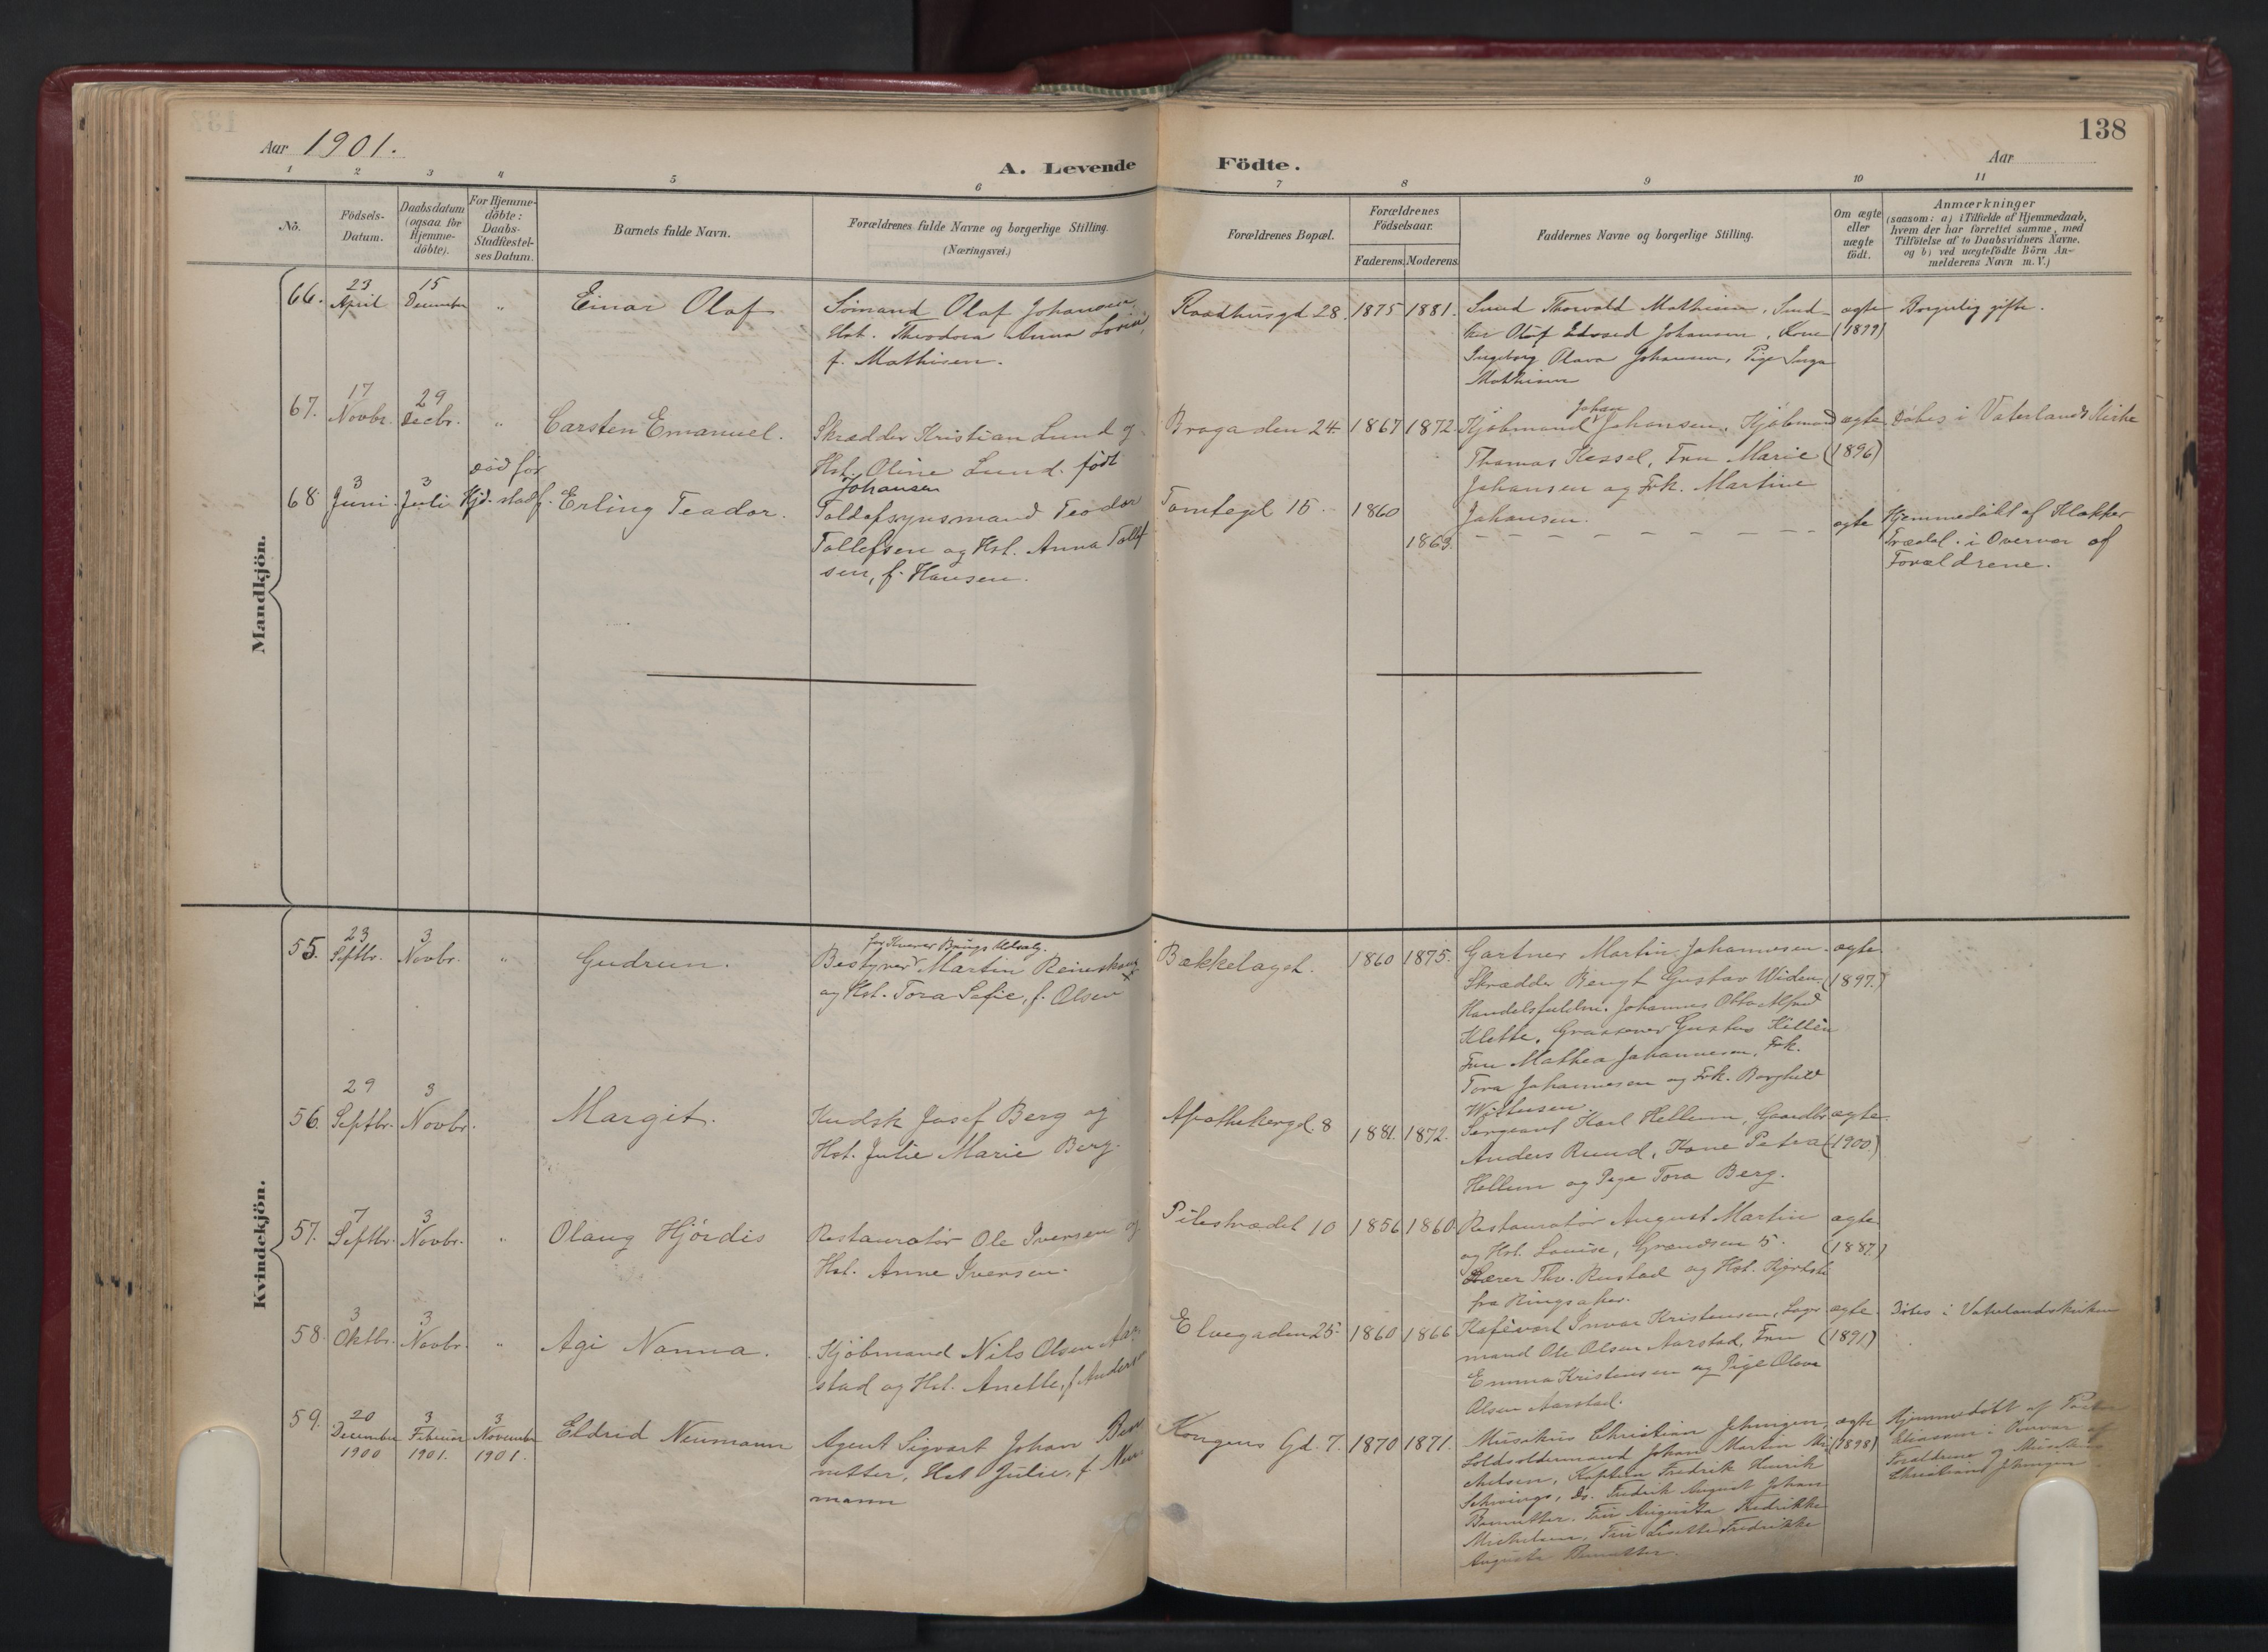 138
Aar 1901.
A. Levende Födte.
Aar
1 2 3 4 5 6 7 8 9 10 11
No.
Födsels-
Datum.
Daabsdatum
(ogsaa for
Hjemme-
döbte).
For Hjemme-
döbte:
Daabs-
Stadfæstel-
ses Datum.
Barnets fulde Navn.
Forældrenes fulde Navne og borgerlige Stilling.
(Næringsvei.)
Forældrenes Bopæl.
Forældrenes
Födselsaar.
Faderens. Moderens.
Faddernes Navne og borgerlige Stilling.
Om ægte
eller
uægte
födt.
Anmærkninger
(saasom: a) i Tilfælde af Hjemmedaab,
hvem der har forrettet samme, med
Tilföielse af to Daabsvidners Navne.
og b) ved uægtefödte Börn An-
melderens Navn m. V.)
Mandkjön.
66.
23
April
15
December
"
Einar Olaf
Sömand Olaf Johansen
Hst. Theodora Anna Lovise,
f. Mathisen.
Raadhusgd 28.
1875
1881.
Smed Thorvald Mathisen, Smed
Olaf Edvard Johansen, Kone
Ingeborg Olava Johansen, Pige Inga
Mathisen
ægte
(1899)
Borgerlig gifte.
67.
17
Novbr.
29
Decbr.
"
Carsten Emanuel.
Skrædder Kristian Lund og
Hst. Oline Lund. født
Johansen
Brogaden 24
1867
1872.
Johan
Kjöbmand Johansen, Kjöbmand
Thomas Kessel, Fru Marie
Johansen og Frk. Martine
Johansen.
ægte
(1896)
Döbes i Vaterlands Kirke
68.
3
Juni.
3
Juli
död før
Kjd. stadf.
Erling Teador.
Toldopsynsmand Teodor
Tollefsen og Hst. Anna Tollef
sen, f. Hansen.
Tomtegd 15.
1860
1863.
ægte
Hjemmedöbt af Klokker
Trædal. i Overvær af
Forældrene.
Kvindekjön.
55.
23
Septbr.
3
Novbr.
"
Gudrun.
for Kverner Brugs Udsalg.
Bestyrer Martin Reineskoug
og Hst. Tora Sofie, f. Olsen
Bækkelaget.
1860
1875.
Gartner Martin Johannesen
Skrædder Bengt Gustav Widen.
Handelsfuldm. Johannes Otto Alfred
Klette, Grosserer Gustav Killèn
Fru Mathea Johannesen, Frk.
Tora Johannesen og Frk. Borghild
Wittusen.
ægte
(1897.)
56.
29
Septbr.
3
Novbr.
Margit.
Kudsk Josef Berg og
Hst. Julie Marie Berg.
Apothekergd. 8
1881.
1872.
Sergeant Karl Hellum, Gaardbr
Anders Ruud, Kone Petra
Hellum og Pige Tora Berg.
ægte
(1900.)
57.
7
Septbr.
3
Novbr.
"
Olaug Hjördis
Restauratör Ole Iversen og
Hst. Anne Iversen.
Pilestrædet 10
1856
1860
Restauratör August Martin
og Hst. Louise, Grændsen 5.
Lærer Thv. Rustad og Hst.
fra Ringsaker.
ægte
(1887.)
58.
3
Oktbr.
3
Novbr.
"
Agi Nanna.
Kjöbmand Nils Olsen Aar
stad og Hst. Anette, f. Andersen
Elvegaden 25
1860
1866
Kafévært Invar Kristensen, Lager
mand Ole Olsen Aarstad, Fru
Emma Kristensen og Pige Olava
Olsen Aarstad.
ægte
(1891)
Döbes i Vaterlandskirken
59.
20
December
1900
3
Februar
1901.
3
November
1901.
Eldrid Neumann
Agent Sigvart Johan Ben
netter, Hst Julie, f. Neu
mann
Kongens Gd. 7.
1870
1871.
Musikus Christian Jehnigen,
Johan Martin Mi
chelsen, Kaptein Fredrik Henrik
Schwings, Do. Fredrik August Johan
Bennetter, Fru Augusta Fredrikke
Michelsen, Fru Lisette Fredrikke
Augusta Bennetter.
ægte
(1898)
Hjemmedöbt af Pastor
Eliassen i Overvær af
Forældrene og Musikus
Christian Jehnigen